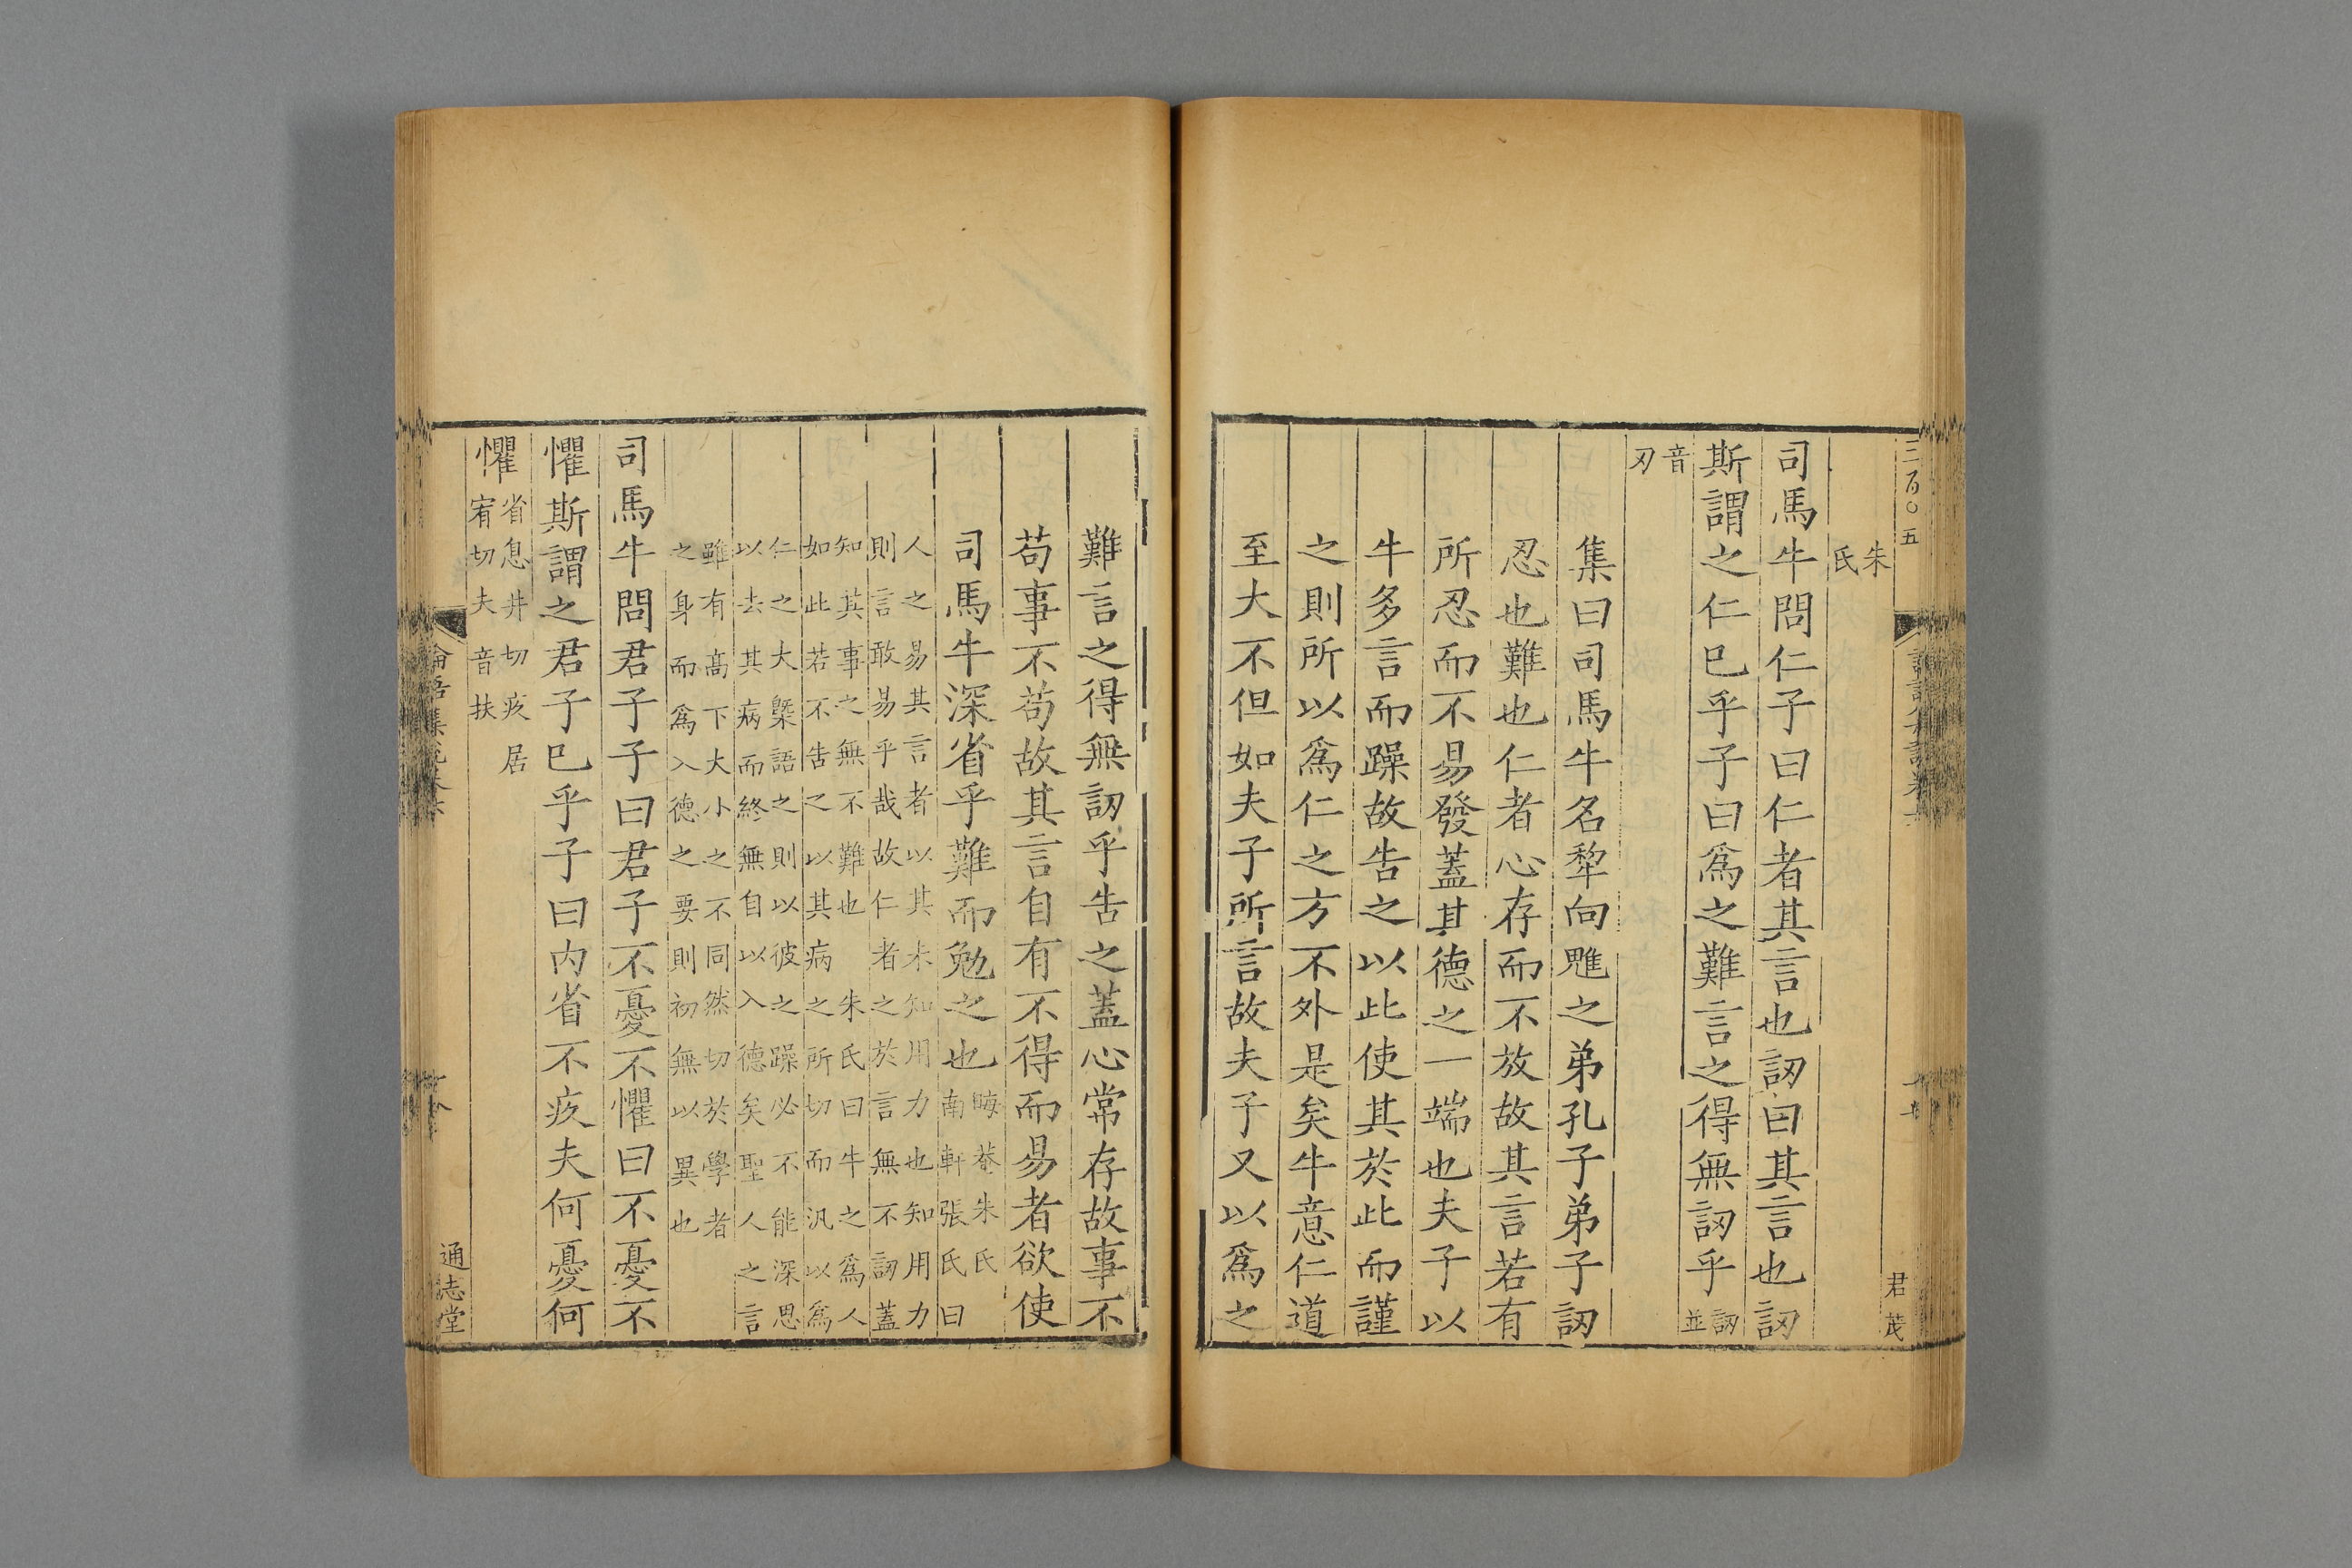 三百〇五
君茂
朱
氏
司馬牛問仁子曰仁者其言也訒曰其言也訒
斯謂之仁巳乎子曰爲之難言之得無訒乎訒並
音刃
集曰司馬牛名犂向魋之弟孔子弟子訒
忍也難也仁者心存而不放故其言若有
所忍而不易發蓋其德之一端也夫子以
牛多言而躁故告之以此使其於此而謹
之則所以爲仁之方不外是矣牛意仁道
至大不但如夫子所言故夫子又以爲之
難言之得無訒乎告之蓋心常存故事不
苟事不苟故其言自有不得而易者欲使
司馬牛深省乎難而勉之也晦菴朱氏南軒張氏曰
人之易其言者以其未知用力也知用力
則言敢易乎哉故仁者之於言無不訒蓋
知其事之無不難也 朱氏曰牛之爲人
如此若不告之以其病之所切而汎以爲
仁之大槩語之則以彼之躁必不能深思
以去其病而終無自以入德矣聖人之言
雖有高下大小之不同然切於學者
之身而爲入德之要則初無以異也
司馬牛問君子子曰君子不憂不懼曰不憂不
懼斯謂之君子巳乎子曰内省不疚夫何憂何
懼省息井切疚居宥切夫音扶
論語集説卷六
十八
通志堂